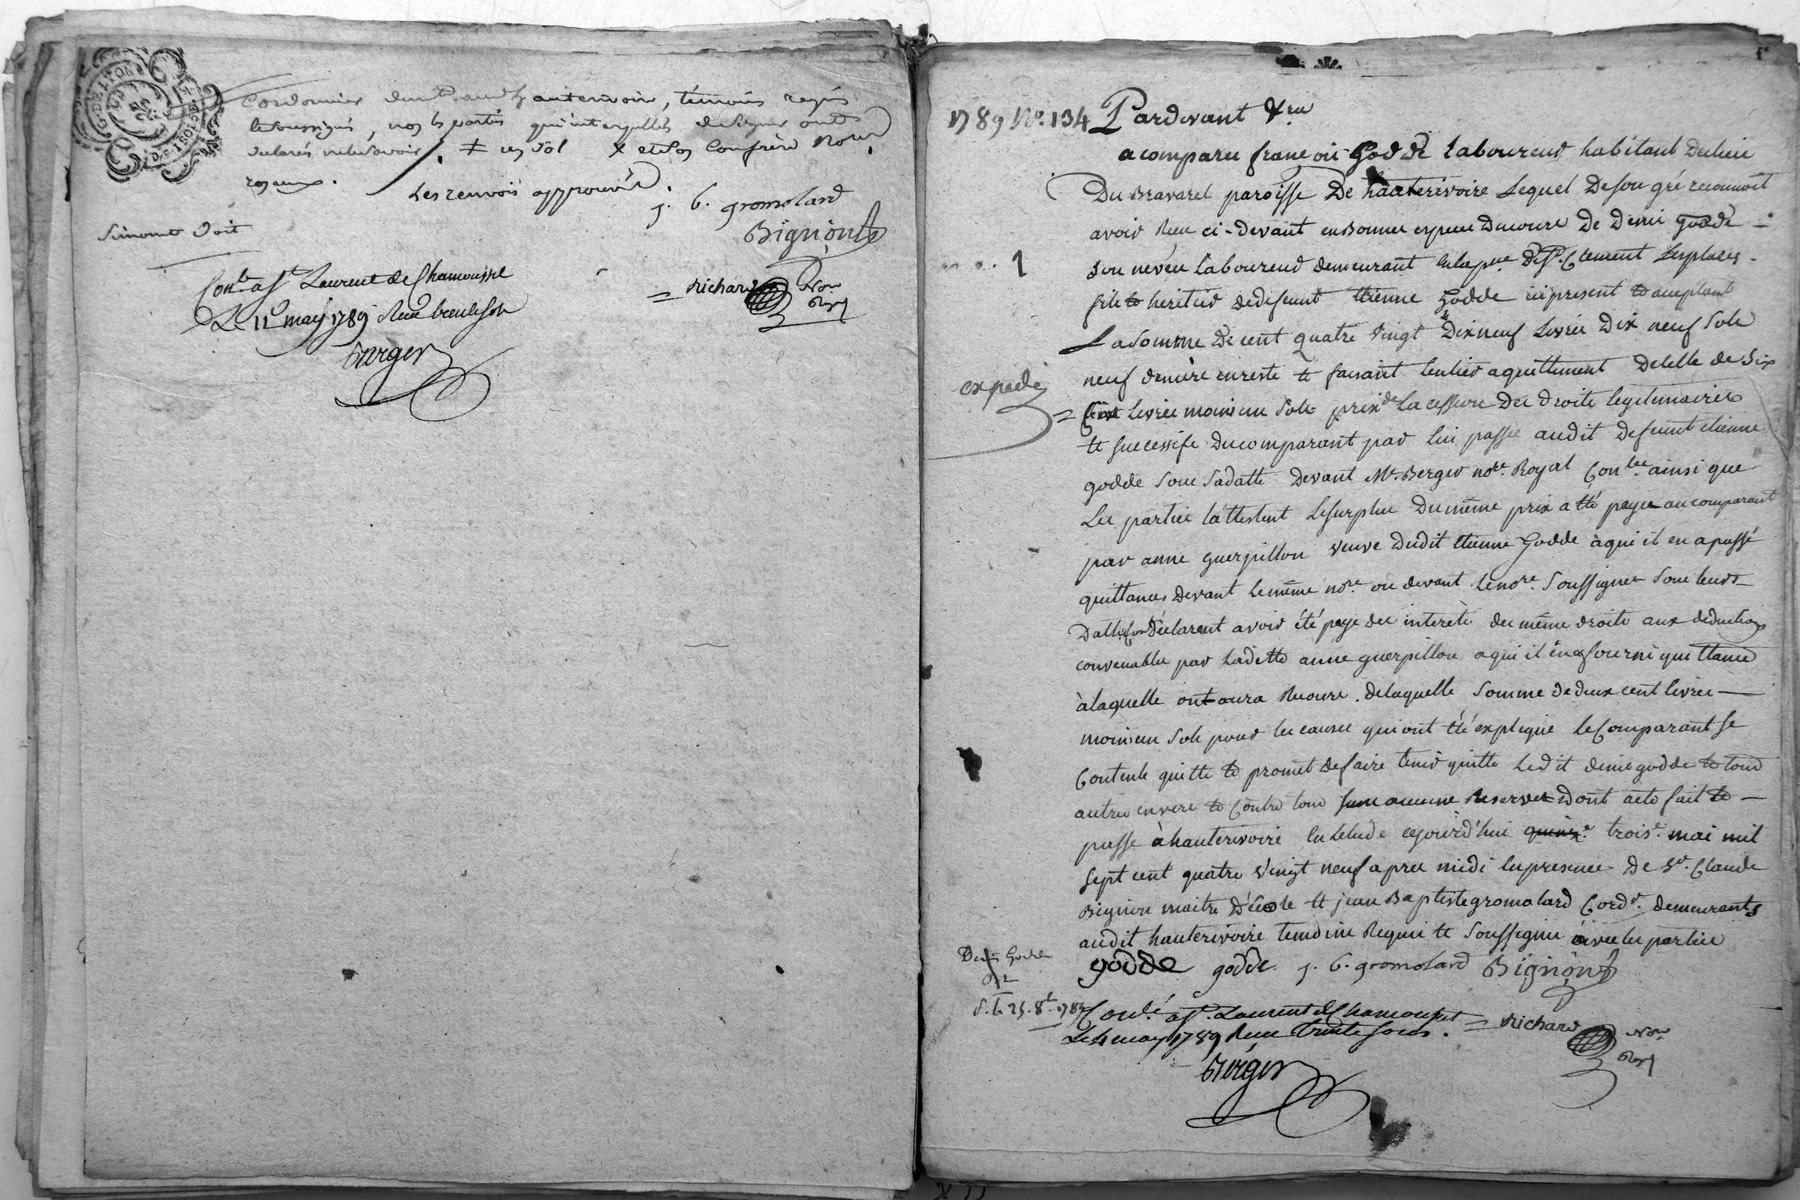 G. DE LYON
Cordonnier audit hauterivoir, témoins requis
le soussignés, non les parties qui interpellés de signer ont
declarés ne le savoir. ≠ un sol x et son confrère Nores
royaux.
Les renvois approuvés.
j. b. gromolard
Bignon
Simone doit
Conlé a St Laurent de Chamousset
Le 11 may 1789 Reçu
Berger
= richard Nore
Royl
1789 No. 134 Pardevant &ra
a comparu françois Godde laboureur habitant du lieu
Du Bravaret paroisse De hauterivoire lequel De son gré reconnoit
avoir Reçu ci-devant en bonnes especes du cours De Denis godde
1
son neveu laboureur demeurant en la psse De St. Clement les places
fils & heritier de defeunt Etienne Godde ici present & acceptant
La somme De cent quatre vingt Dix neuf livres Dix neuf sols
neuf deniers en reste & faisant l'entier aquittement De celle de Six
expedié
= Cent livres moins un sols prix de La cession Des droits legitimaires
& successifs du comparant par lui passée audit defeunt etienne
godde sous sa datte Devant Me. Berger nore. Royal Conlée ainsi que
Les parties l'attestent Le surplus Du même prix a été payé au comparant
par anne guerpillon veuve Dudit Etienne Godde à qui il en a passé
quittances Devant le même nore. ou devant le nore. soussigné sous leurs
Dattes Déclarent avoir été payé des interêts des même droits aux deductions
convenables par Ladette anne guerpillon a qui il en a fourni quittance
à laquelle on aura Recours. de laquelle somme de deux cent livres
moins un sols pour les causes qui ont été expliqué le Comparant se
Contente quitte & promet de faire tenir quitte Ledit denis godde & tous
autres envers & contre tous sans aucune Reserves dont acte fait &
passé à hauterivoire en l'etude cejourd'hui quinze trois mai mil
sept cent quatre vingt neuf apres midi en presence De Sr. Claude
Bignon maitre D'école & jean Baptiste gromolard Cordr. demeurants
audit hauterivoire temoins Requis & soussignés avec les parties
Denis Godde
godde godde. j. b. gromolard Bignon
25. 8e. 1789
Conlé a St. Laurent de Chamousset = richard Nore
Le 4 may 1789 Reçu trente sous. Royl
Berger